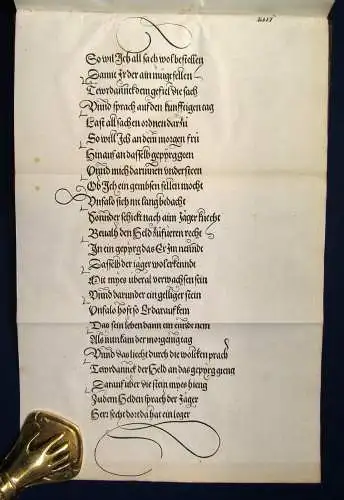 So wil Ich all sach wol bestellen
Damit Ir der ain mügt fellen
Tewrdannck dem gefiel die sach
Vnnd sprach auf den kunfftigen tag
Last all sachen ordnen darzů
So will Ich an dem morgen frů
Hinauf an dasselb gepyrg geen
Vnnd mich darinnen vndersteen
Ob Ich ein gembsen fellen mocht
Vnfalo sich nit lang bedacht
Sonnder schickt nach aim Jäger knecht
Beualh den Held zůfüeren recht
In ein gepyrg das Er Im nenndt
Dasselb der jager wol erkenndt
Mit myes vberal verwachsen sein
Vnnd darunder ein gelliger stein
Vnfalo hofft so Er darauf kem
Das sein leben dann ein ennde nem
Als nun kam der morgennd tag
Vnnd das liecht durch die wolcken prach
Tewrdannck der Held an das gepyrg gieng
Darauf vber die stein myes hieng
Zu dem Helden sprach der Jäger
Herr secht dort da hat ein leger